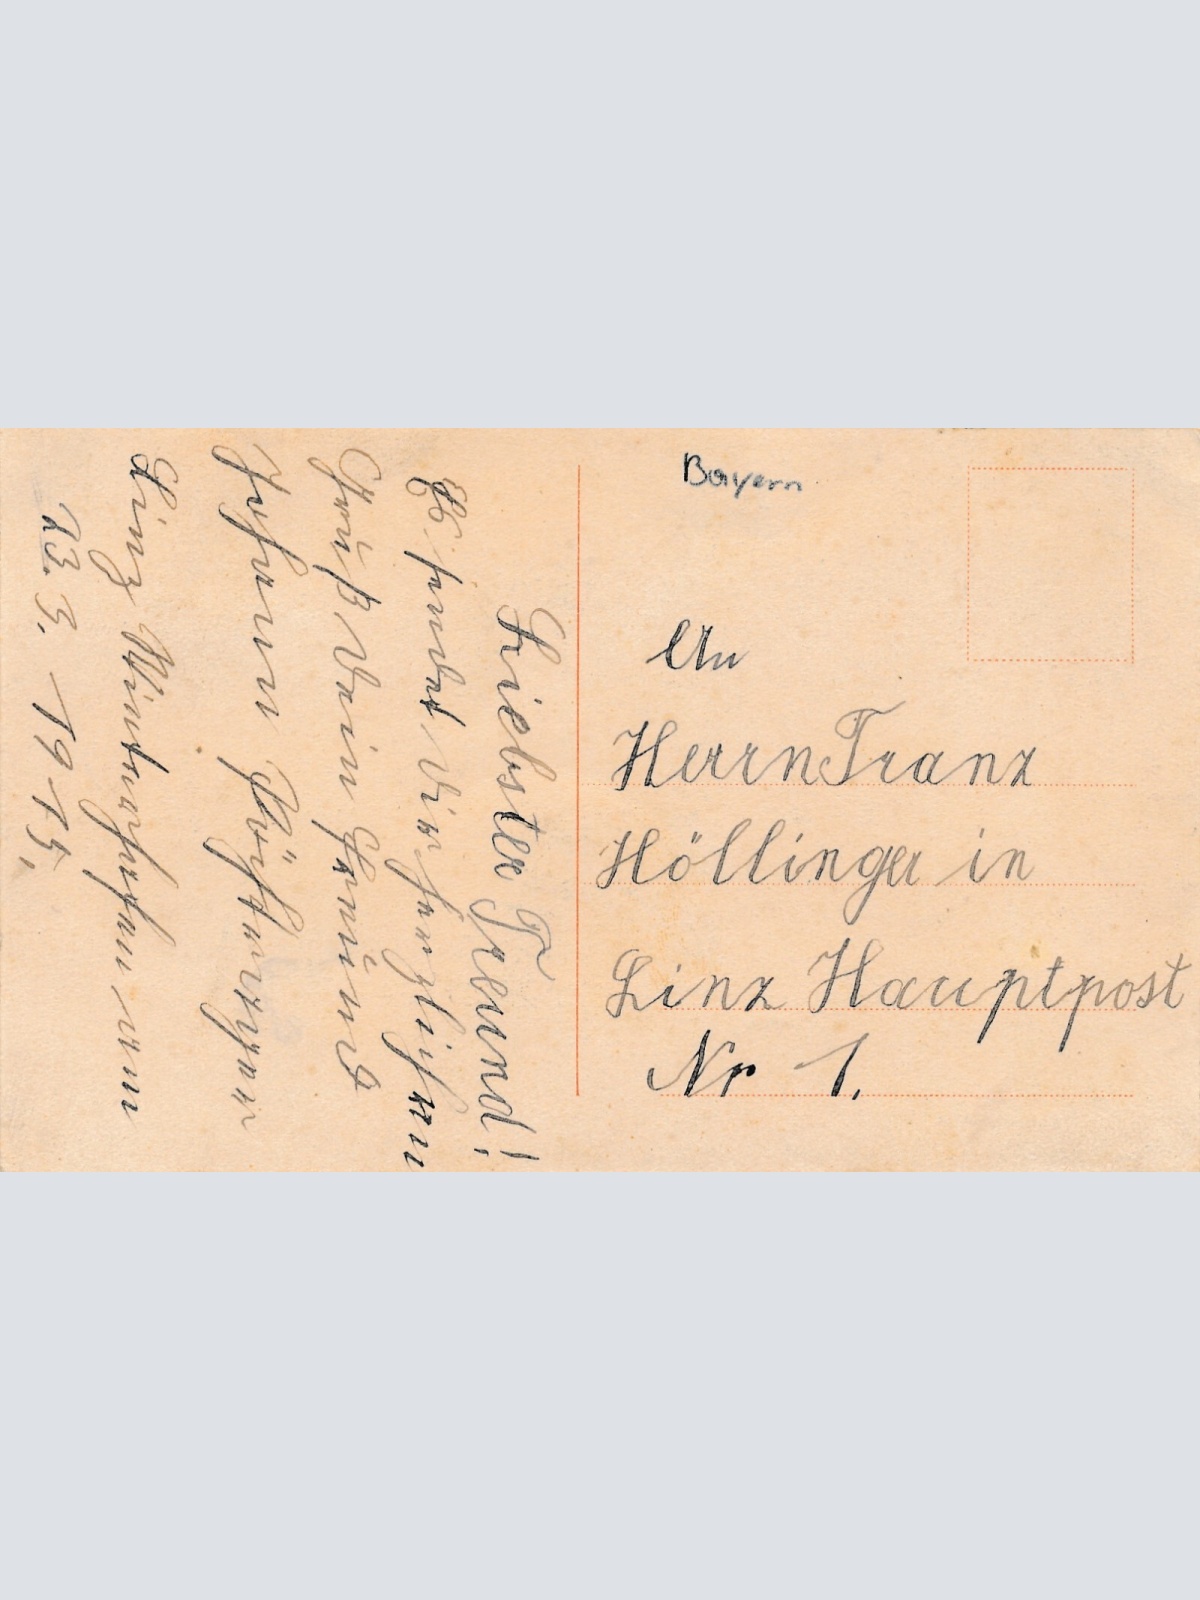 Liebster Freund!
Es sendet dir herzlichen
Gruß dein Freund
Johann
Linz Winterhafen
23. 3. 1915.
Bayern
An
Herrn Franz
Höllinger in
Linz Hauptpost
Nr 1.